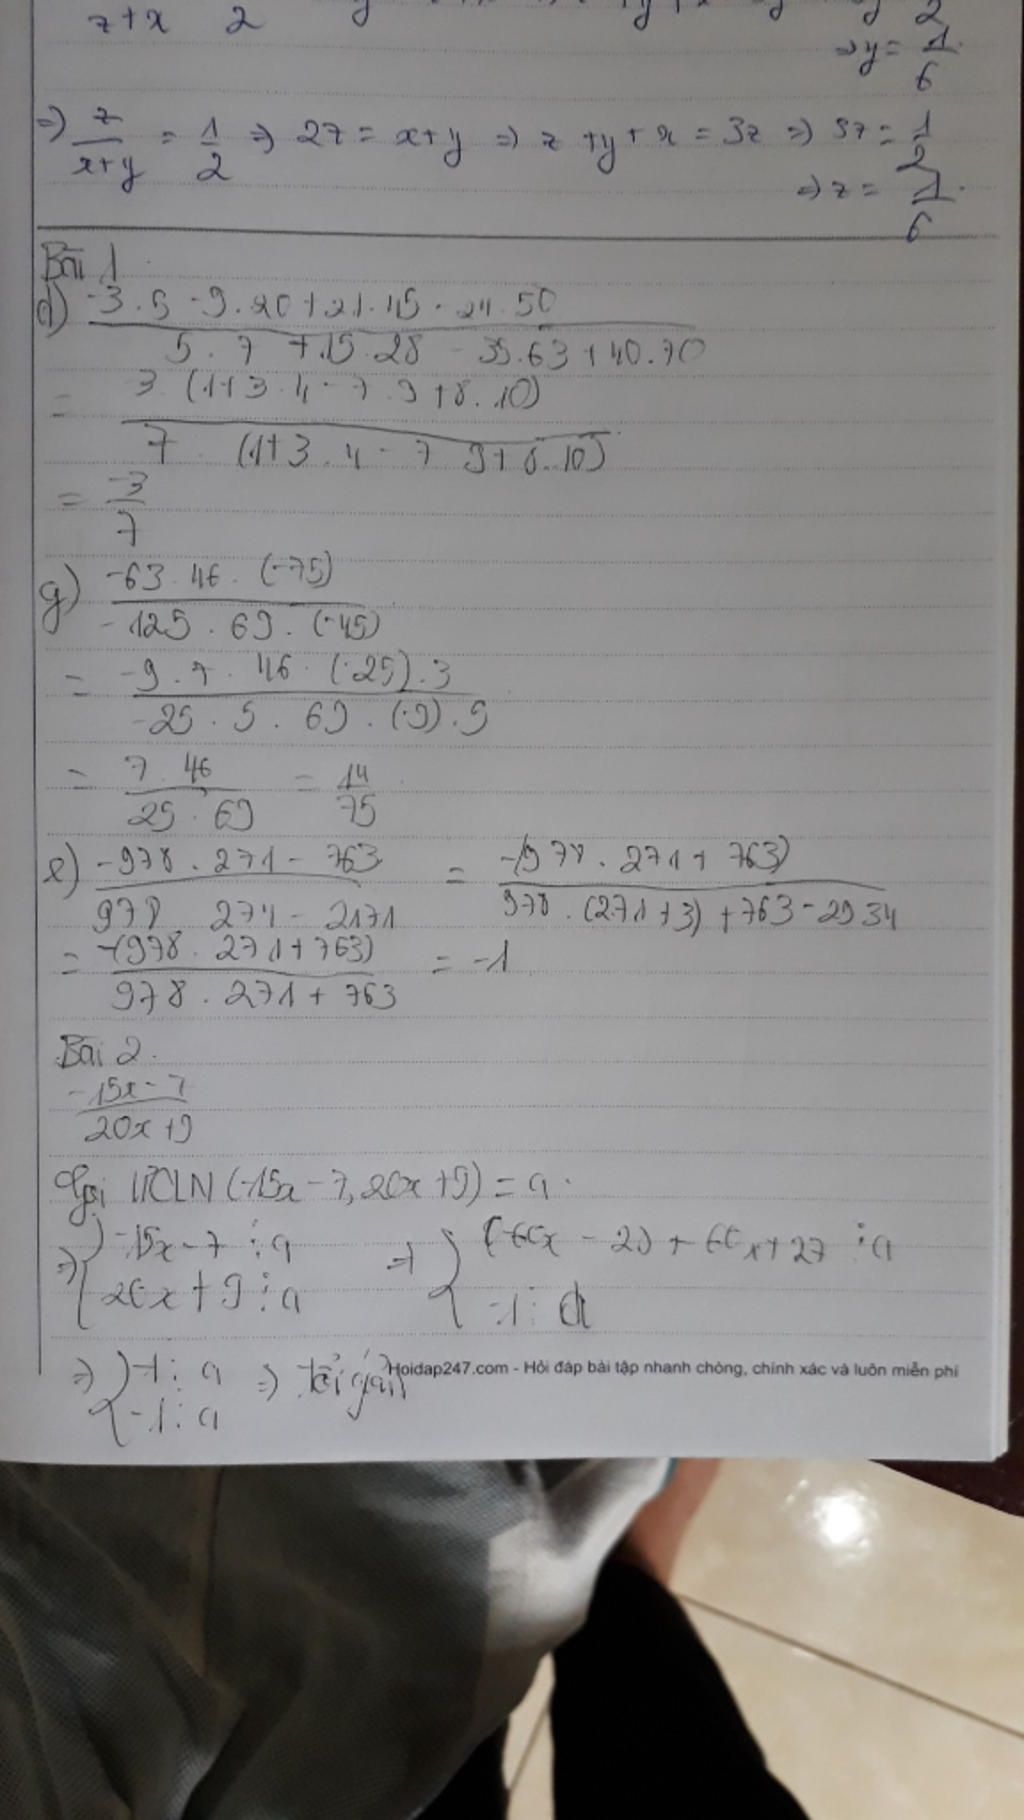 z+x 2
⇒ y = 1/6
⇒ z/(x+y) = 1/2 ⇒ 2z = x+y ⇒ z+y+x = 3z ⇒ 3z = 1/2
⇒ z = 1/6
Bài 1
d) -3.5 -9.20+21.45-24.50
5.7 +15.28 -35.63+40.70
= 3 (1+3.4-7.9+8.10)
7 (1+3.4-7 9+8.10)
= -3/7
g) -63.46.(-75)
-125.69.(-45)
= -9.7.46.(-25).3
-25.5.69.(-9).5
= 7 46 = 14
25.69 75
e) -978.271-763 = -(978.271+763)
978 274-2171 978.(271+3)+763-2934
= -(978.271+763) = -1
978.271+763
Bài 2.
-15x-7
20x+9
Gọi ƯCLN (-15x-7,20x+9) = a.
⇒ { -15x-7 ⋮ a ⇒ { (-60x-28)+60x+27 ⋮ a
20x+9 ⋮ a -1 ⋮ d
⇒ { -1 ⋮ a ⇒ tối giản Hoidap247.com - Hỏi đáp bài tập nhanh chóng, chính xác và luôn miễn phí
-1 ⋮ a